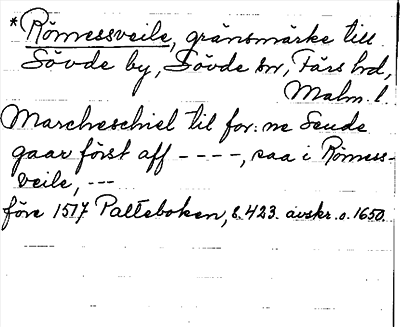 *Römessveile, gränsmärke till
Sövde by, Sövde sn, Färs hd,
Malm. l.
Marcheschiel til for: ne Seude
gaar först aff - - - -, saa i Römess-
veile, - - -
före 1517 Palteboken, s. 423. avskr. o. 1650.